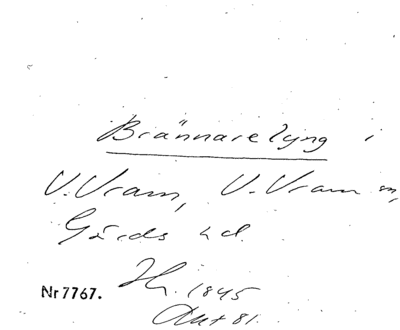 Brännarelyng i
V. Vram, V. Vram sn,
Gärds hd.
Nr 7767.
Hr. 1845
Akt 81.